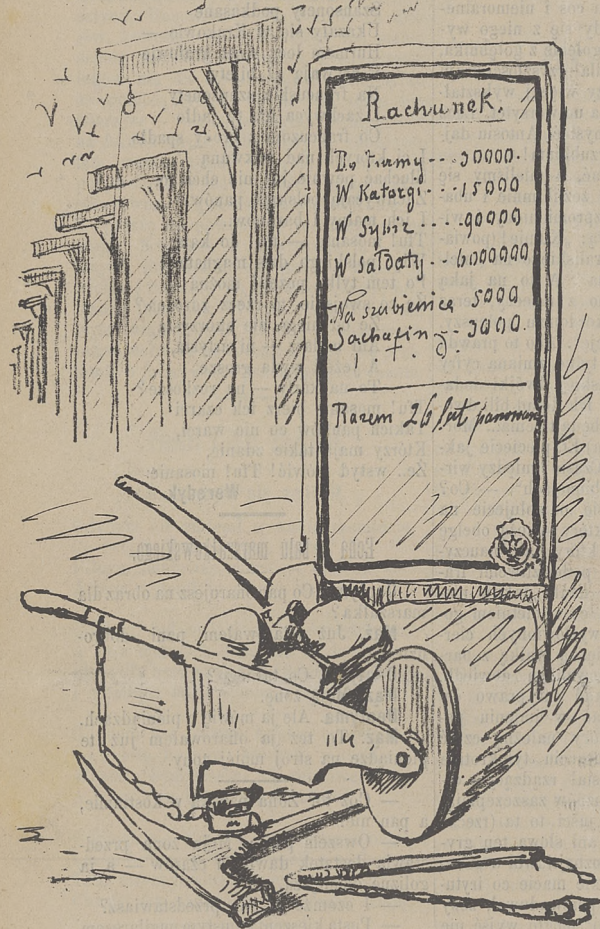 Rachunek.
Do turmy --- 30000.
W Katorgi --- 15000
W Sybir ---- 90000
W Sałdaty -- 6000000
Na szubienicę 5000
Sachalin --- 3000.
i. t. d.
Razem 26 lat